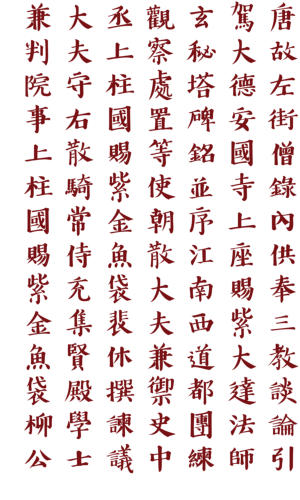 唐故左街僧錄內供奉三教談論引
駕大德安國寺上座賜紫大達法師
玄秘塔碑銘並序江南西道都團練
觀察處置等使朝散大夫兼御史中
丞上柱國賜紫金魚袋裴休撰諫議
大夫守右散騎常侍充集賢殿學士
兼判院事上柱國賜紫金魚袋柳公